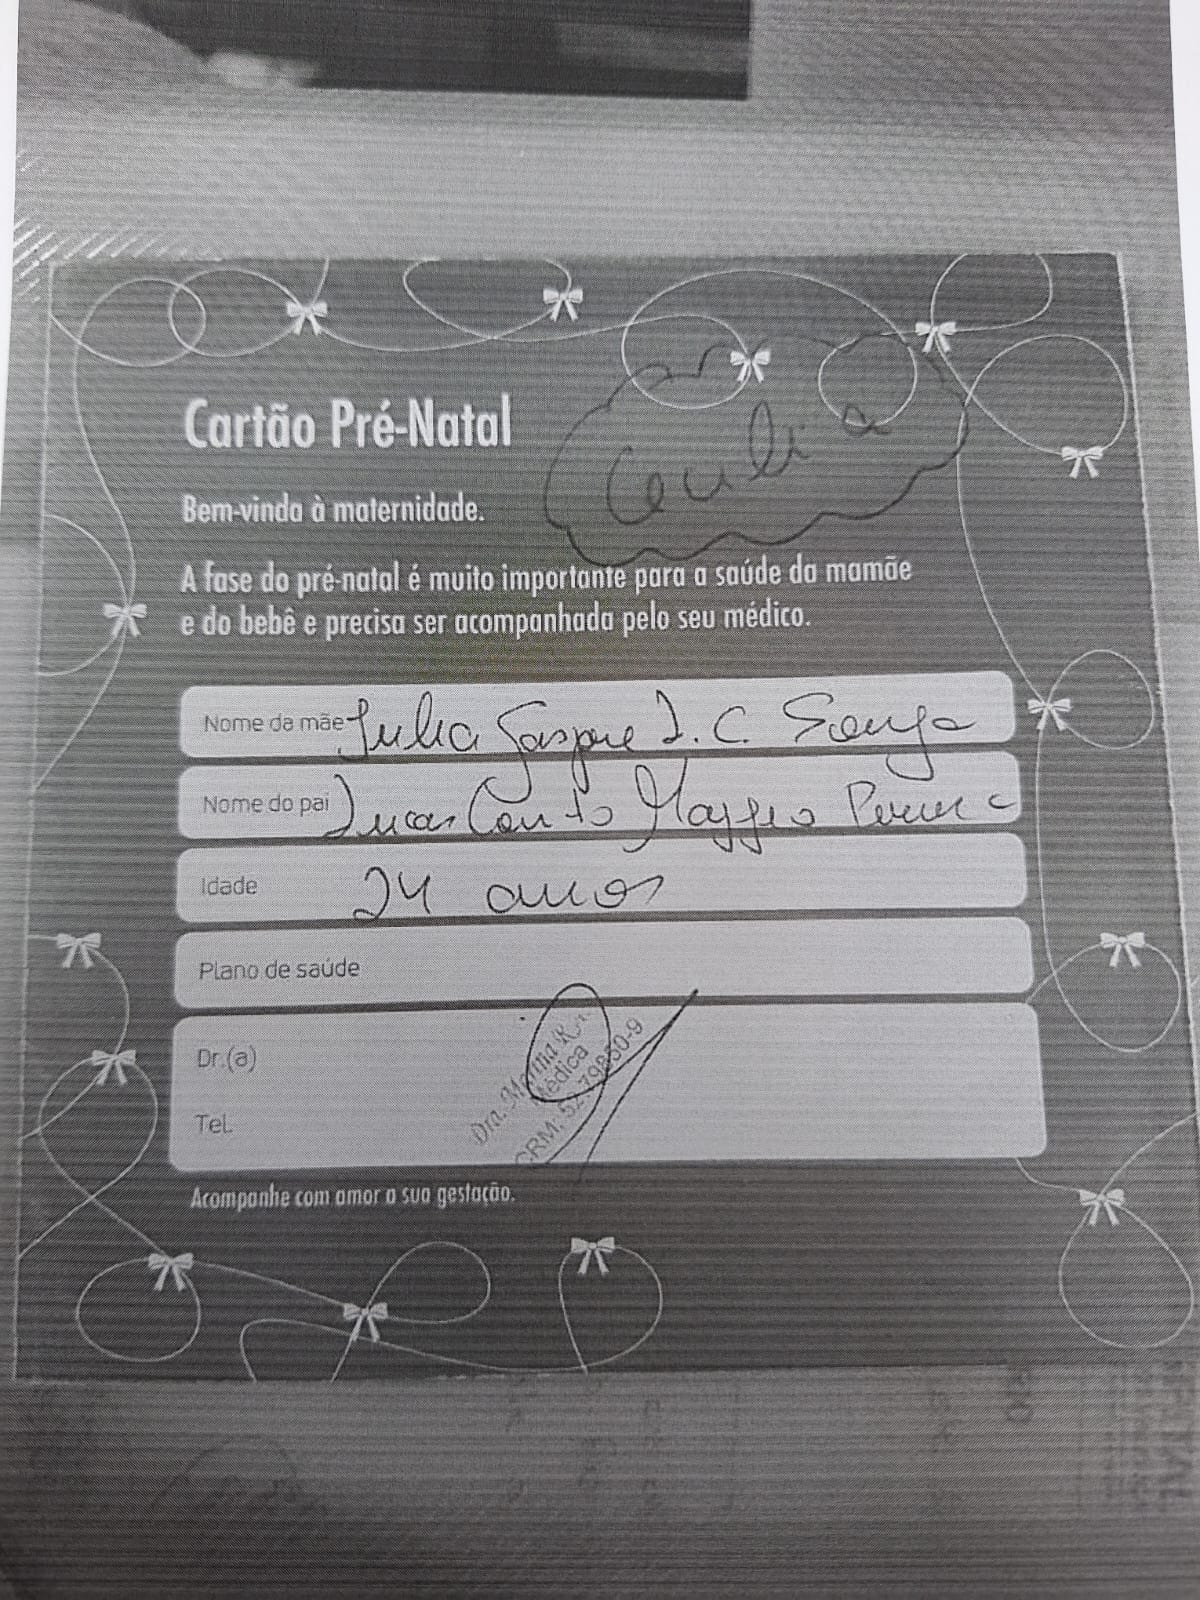 Cartão Pré-Natal
Bem-vinda à maternidade.
A fase do pré-natal é muito importante para a saúde da mamãe
e do bebê e precisa ser acompanhada pelo seu médico.
Nome da mãe Julia Gaspre J. C. Souza
Nome do pai Lucas Couto Maggio
Idade 24 anos
Plano de saúde
Dr.(a)
Dra. Marina
Médica
CRM: 52
Tel.
Acompanhe com amor a sua gestação.